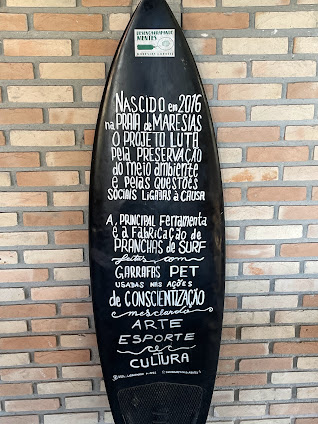 DESENGARRAFANDO
MENTES
NASCIDO em 2016
na PRAIA de MARESIAS
O PROJETO LUTA
pela PRESERVAÇÃO
do meio ambiente
e pelas questões
SOCIAIS LIGADAS à CAUSA
A, PRINCIPAL Ferramenta
é a FABRICAÇÃO de
PRANCHAS de SURF
feitas com
GARRAFAS PET
USADAS NAS AÇÕES
de CONSCIENTIZAÇÃO
mesclando
ARTE
ESPORTE
e
CULTURA